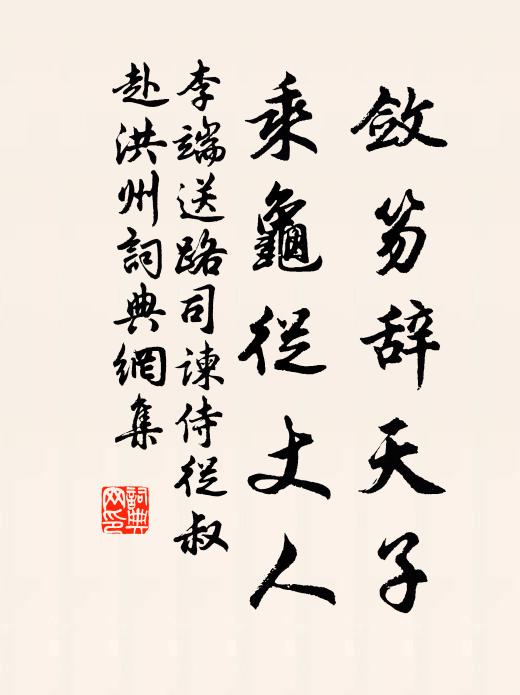 敛笏辞天子
乘龜從丈人
李端送路司諫侍從叔
赴洪州詞典網集
詞典網印